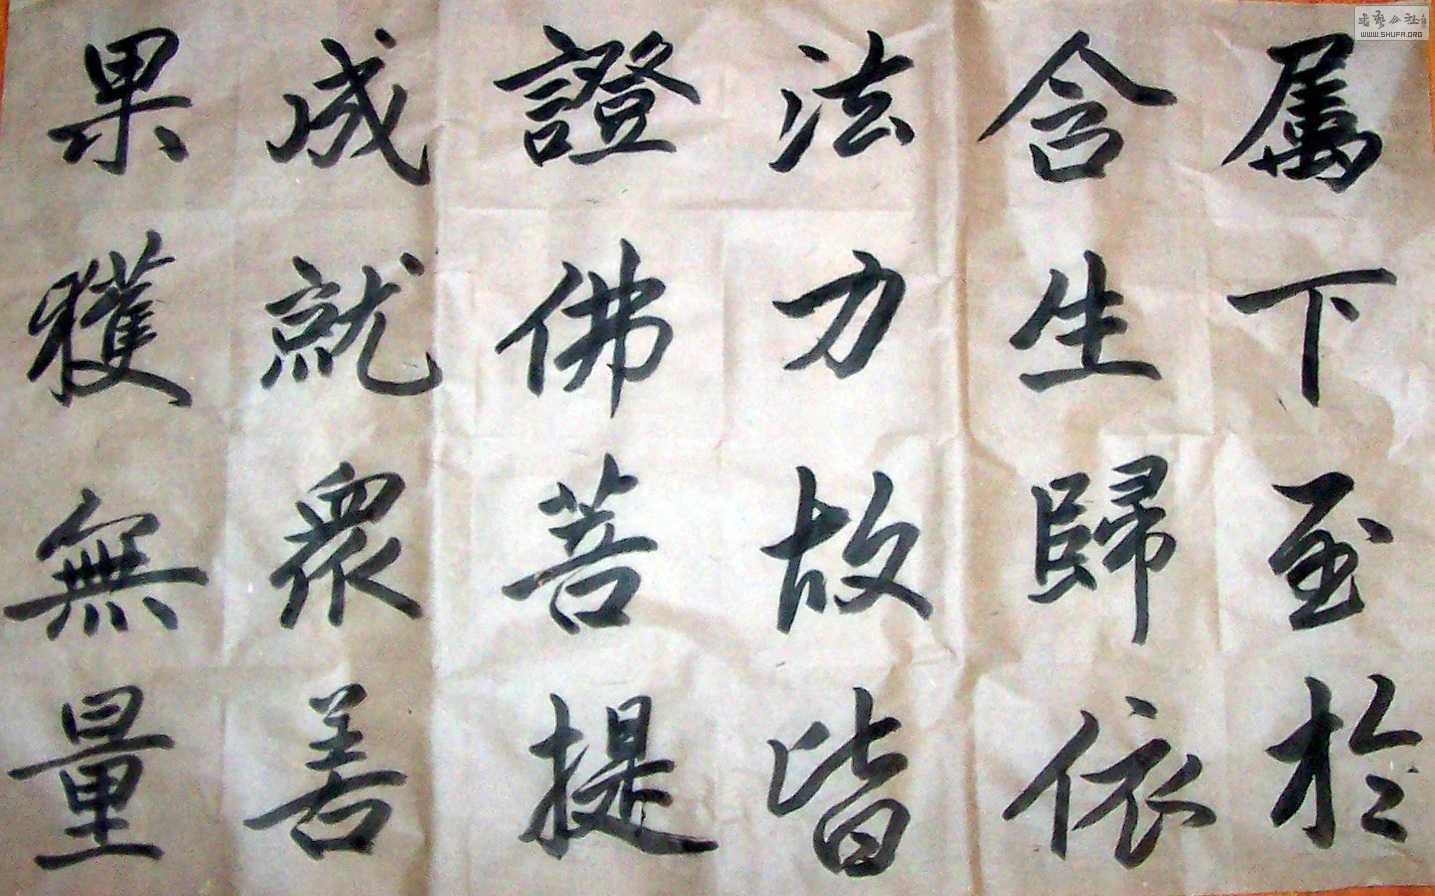 属下至於
含生歸依
法力故皆
證佛菩提
成就衆善
果獲無量
WWW.SHUFA.ORG